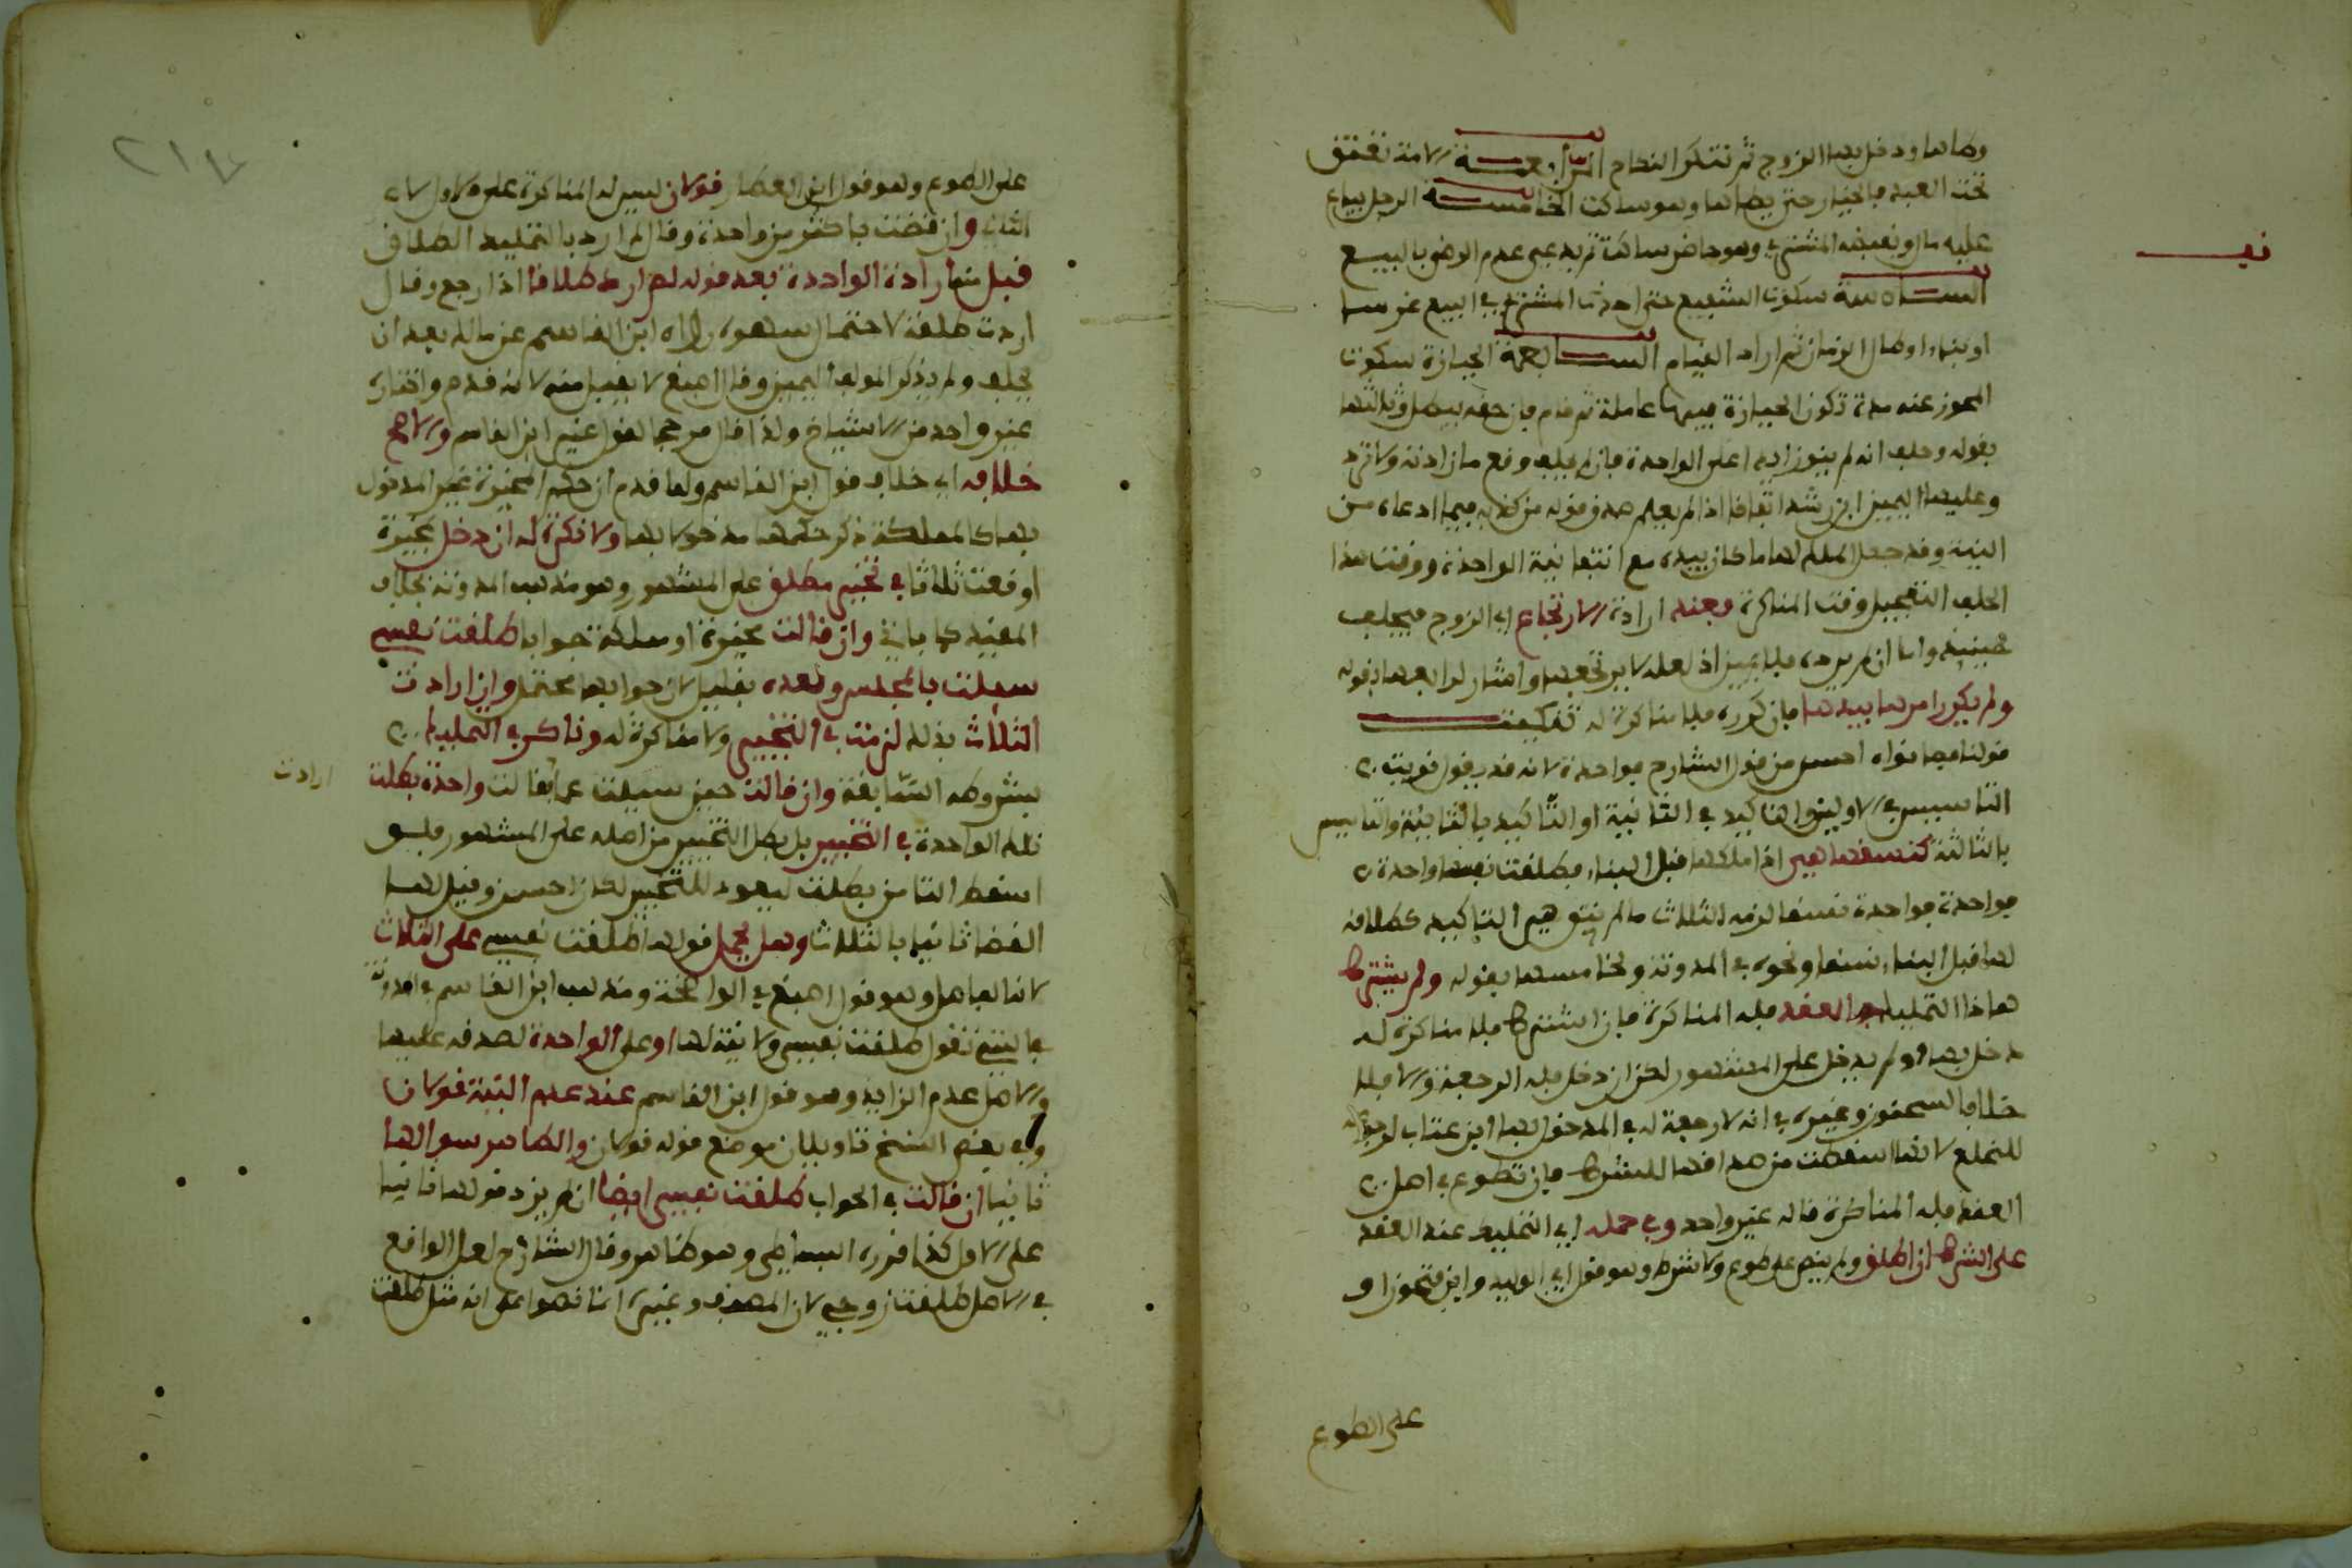 وطاها ودخل بها الزوج ثم تنكر النكاح الرابعة الامة تعتق
تحت العبد بالخيار حتى يطاها وهو ساكت الخامسة الرجل يباع
عليه مال ويقبضه المشتري وهو حاضر ساكت ثم يدعى عدم الرضى بالبيع
تنبيه
السادسة سكوت الشفيع حتى احدث المشتري في البيع غرسا
او بناء او طال الزمان ثم اراد القيام السابعة الحيازة سكوت
المحوز عنه مدة تكون الحيازة فيها عاملة ثم قام فان حقه يبطل وثالثها
بقوله وحلف انه لم ينو ازيد اعلى الواحدة فان لم يحلف وقع ما زادته ولا ترد
وعليها اليمين ابن رشد اتفاقا اذا لم يعلم صدق قوله من كذبه فيما ادعاه من
النية وقد جعل الملك لها ما كان بيده مع انتفا نية الواحدة ووقت هذا
الحلف التعجيل وقت المناكرة وعند ارادة الارتجاع اي الزوج فيحلف
حينئذ واما ان لم يرده فلا يمين اذ لعله لا يرتجعها واشار لرابعها بقوله
ولم يكرر امرها بيدها فان كرره فلا مناكرة له تنكيت
قولنا فيما نواه احسن من قول الشارح فواحدة لانه قد يقول نويت
التاسيس في الاولى والتاكيد في الثانية او التاكيد بالثانية والتاسيس
بالثالثة كنسقها هي اذا ملكها قبل البناء فطلقت نفسها واحدة
فواحدة فواحدة نسقا لزمه الثلاث ما لم ينو هي التاكيد كطلاقه
لها قبل البناء نسقا ونحوه في المدونة ولخامسها بقوله ولم يشترط
هذا التمليك في العقد فله المناكرة فان اشترط فلا مناكرة له
دخل بها او لم يدخل على المشهور لكن ان دخل فله الرجعة والا فلا
خلافا لسحنون وغيره في انه لا رجعة له في المدخول بها ابن عتاب لرجوعه
للخلع لانها اسقطت من صداقها للشرط فان تطوع في اصل
العقد فله المناكرة قاله غير واحد وفي حمله اي التمليك عند العقد
على الشرط ان اطلق ولم ينص على طوع ولا شرط وهو قول ابي الوليد وابن فتحون او
على الطوع
على الطوع وهو قول ابن العطار قولان ليس له المناكرة على الاول لا
الثاني وان قضت باكثر من واحدة وقال لم ارد بالتمليك الطلاق
قبل منه ارادة الواحدة بعد قوله لم ارد طلاقا اذا رجع وقال
اردت طلقة لاحتمال سهوه رواه ابن القاسم عن مالك بعد ان
يحلف ولم يذكر المولف اليمين وقال اصبغ لا يقبل منه لانه ندم واختاره
غير واحد من الاشياخ ولذا قال مرجحا لقول غير ابن القاسم والاصح
خلافه اي خلاف قول ابن القاسم ولما قدم ان حكم المخيرة غير المدخول
بها كالمملكة ذكر حكمها مدخولا بها ولا نكرة له ان دخل بمخيرة
اوقعت ثلاثا في تخيير مطلق على المشهور وهو مذهب المدونة بخلاف
المقيد كما ياتي وان قالت مخيرة او مملكة جوابا طلقت نفسي
سيلت بالمجلس وبعده بقليل لان جوابها محتمل وان ارادت
الثلاث بذلك لزمت في التخيير ولا مناكرة له وناكر في التمليك
ارادت
بشروطه السابقة وان قالت حين سيلت عما قالت واحدة بطلت
تلك الواحدة في التخيير بل بطل التخيير من اصله على المشهور فلو
اسقط التا من بطلت ليعود للتخيير لكان احسن وقيل لها
القضا ثانيا بالثلاث وهل يحمل قولها طلقت نفسي على الثلاث
لانه الاصل وهو قول اصبغ في الواضحة ومذهب ابن القاسم في المدونة
في التي تقول طلقت نفسي ولا نية لها او على الواحدة لصدقه عليها
والاصل عدم الزايد وهو قول ابن القاسم عند عدم النية قولان
وفي بعض النسخ تاويلان موضع قوله قولان والظاهر سوالها
ثانيا ان قالت في الجواب طلقت نفسي ايضا ان لم يزد قولها ثانيا
على الاول كذا قرره البساطي وهو ظاهر وقال الشارح لعل الواقع
في الاصل طلقت زوجي لان المصنف وغيره انما نصوا على انه مثل طلقت